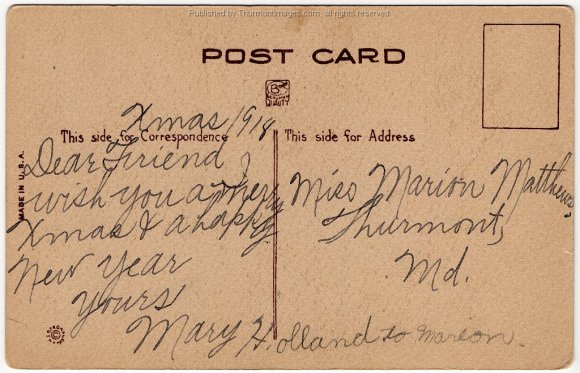 Published by Thurmontimages.com, all rights reserved
POST CARD
B
QUALITY
Xmas 1918
This side for Correspondence
This side for Address
MADE IN U.S.A.
Dear Friend,
wish you a Merry
Xmas & a happy
New Year
Yours
Mary Holland to Marion.
Miss Marion Matthews
Thurmont,
Md.